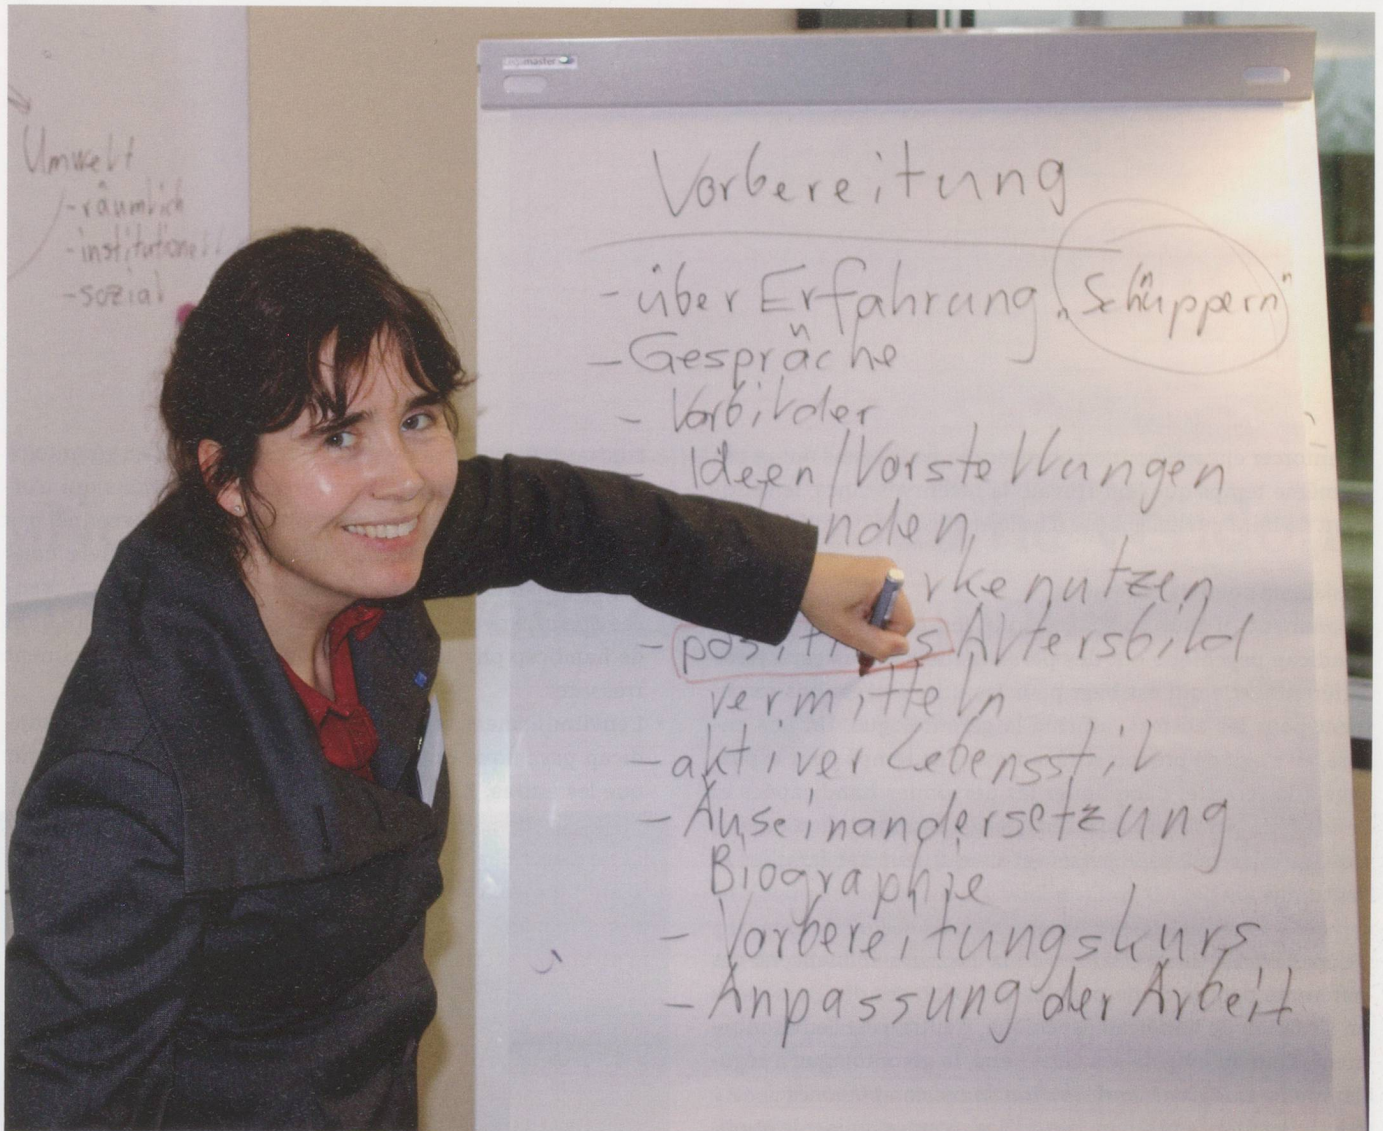 Umwelt
- räumlich
- institutionell
- sozial
Legamaster
Vorbereitung
- über Erfahrung „Schnuppern"
- Gespräche
- Vorbilder
- Ideen/Vorstellungen
nden
rke nutzen
- positives Altersbild
vermitteln
- aktiver Lebensstil
- Auseinandersetzung
Biographie
- Vorbereitungskurs
- Anpassung der Arbeit